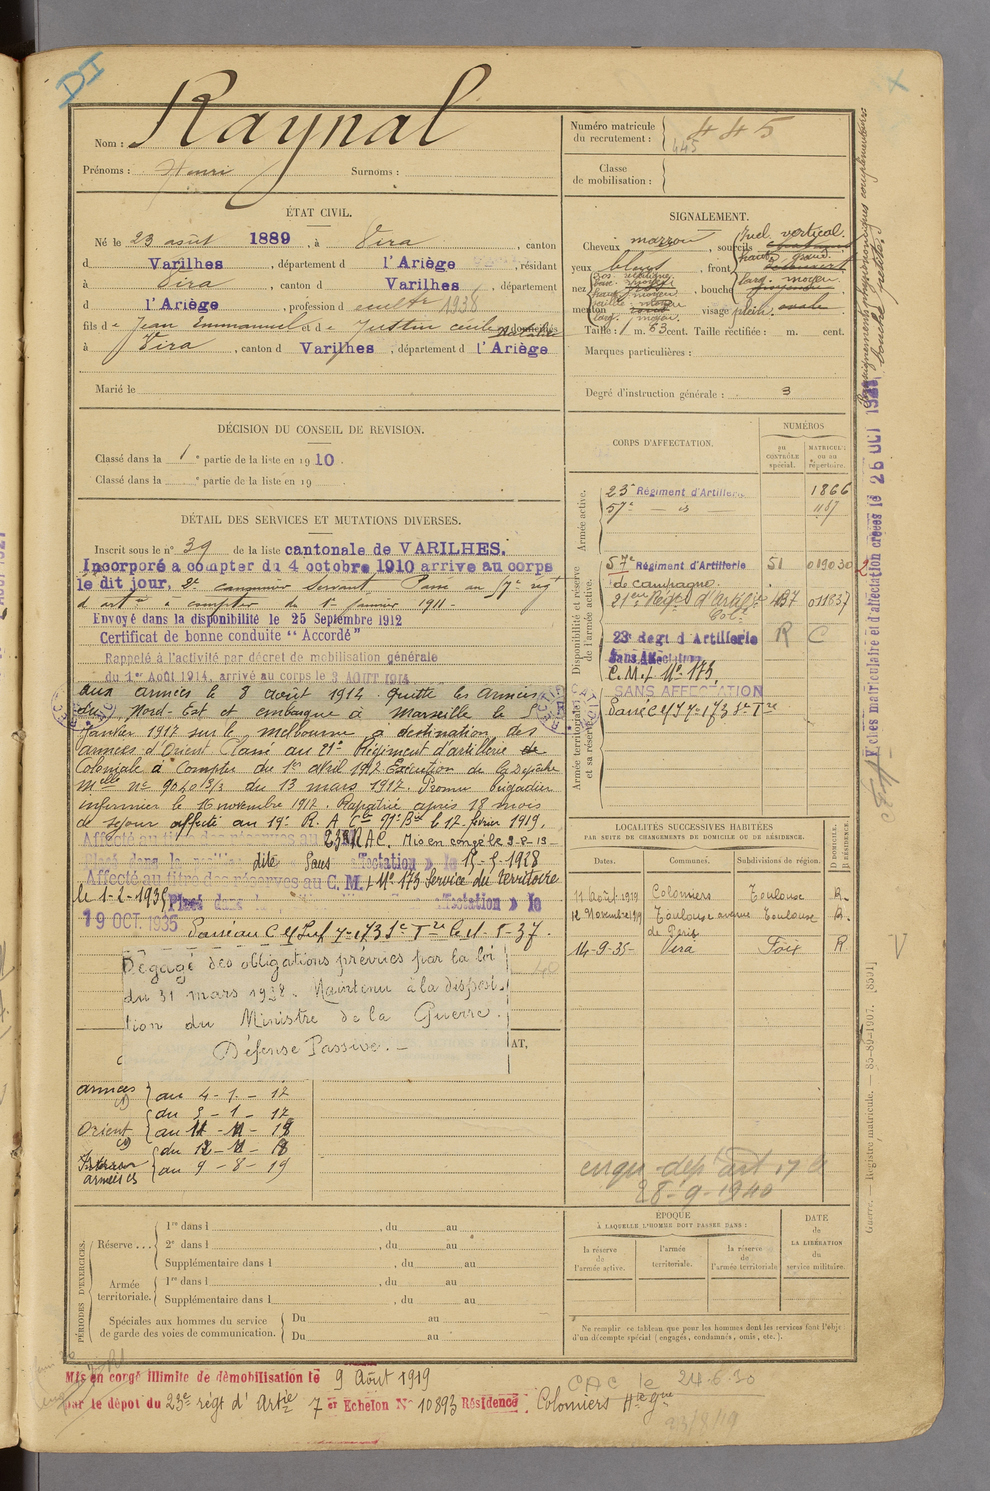 DI
Nom : Raynal
Prénoms : Henri Surnoms :
Numéro matricule
du recrutement : 445
445
Classe
de mobilisation :
ÉTAT CIVIL.
Né le 23 août 1889, à Vira, canton
d Varilhes, département d l'Ariège, résidant
à Vira, canton d Varilhes, département
d l'Ariège, profession d cultr 1938
fils de Jean Emmanuel et de Justin domiciliés
à Vira, canton d Varilhes, département d l'Ariège
Marié le
SIGNALEMENT.
Cheveux marron, sourcils
yeux bleus, front
nez, bouche
menton, visage plein
Incl. vertical.
haut. grand.
larg. moyen.
haut. moyen
larg. moyen.
Taille : 1 m. 63 cent. Taille rectifiée : m. cent.
Marques particulières :
Degré d'instruction générale : 3
DÉCISION DU CONSEIL DE REVISION.
Classé dans la 1e partie de la liste en 1910.
Classé dans la e partie de la liste en 19
DÉTAIL DES SERVICES ET MUTATIONS DIVERSES.
Inscrit sous le n° 39 de la liste cantonale de VARILHES.
Incorporé a compter du 4 octobre 1910 arrive au corps
le dit jour, 2e canonnier servant. Passe au 57e rég
d'artie à compter du 1er Janvier 1911 -
Envoyé dans la disponibilité le 25 Septembre 1912
Certificat de bonne conduite "Accordé"
Rappelé à l'activité par décret de mobilisation générale
du 1er Août 1914, arrivé au corps le 3 AOUT 1914
aux armées le 8 août 1914. Quitte les armées
du Nord-Est et embarque à Marseille le 5
Janvier 1917 sur le Melbourne à destination des
armées d'Orient Classé au 21e Régiment d'artillerie
Coloniale à compter du 1er avril 1917 Exécution de la Dépêche
Melle n° 9040 3/3 du 13 mars 1917. Promu brigadier
infirmier le 16 novembre 1917. Rapatrié après 18 mois
de séjour affecté au 19e R. A. Cie 91e Bie le 17 février 1919.
Affecté au titre des réserves au 23e R A C. Mis en congé le 9-8-19-
Placé dans la position dite « Sans affectation » le 15-5-1928
Affecté au titre des réserves au C. M. I N° 173 Service du territoire
le 1-2-1935 Placé dans la affectation » le
19 OCT. 1935 Passé au C Mf Inf n° 173 Sce Tre le 1-8-37.
Dégagé des obligations prévues par la loi
du 31 mars 1928. Maintenu à la disposi-
tion du Ministre de la Guerre.
Défense Passive. -
armées (1) au 4-1-17
Orient (2) du 5-1-17
au 11-11-18
Intérieur du 12-11-18
armées au 9-8-19
CORPS D'AFFECTATION.
NUMÉROS
au
CONTRÔLE
spécial.
MATRICULE
ou au
répertoire.
Armée active.
23e Régiment d'Artillerie 1866
57e — d — 1157
Disponibilité et réserve
de l'armée active.
57e Régiment d'Artillerie 51 019030
de campagne.
21eme Régt d'Artillie 137 011837
Colle
23e Régt d'Artillerie R C
Sans Affectation
Armée territoriale
et sa réserve.
C. M. I N° 173
SANS AFFECTATION
Passé C Mf I n° 173 Sce Tre
LOCALITÉS SUCCESSIVES HABITÉES
PAR SUITE DE CHANGEMENTS DE DOMICILE OU DE RÉSIDENCE.
Dates. Communes. Subdivisions de région. D DOMICILE. R RÉSIDENCE.
11 Août 1919 Colomiers Toulouse R.
12 Novembre 1919 Toulouse avenue Toulouse R.
de Paris
14-9-35- Vira Foix R
28-9-1940
PÉRIODES D'EXERCICES.
Réserve ...
1re dans l , du au
2e dans l , du au
Supplémentaire dans l , du au
Armée
territoriale.
1re dans l , du au
Supplémentaire dans l , du au
Spéciales aux hommes du service
de garde des voies de communication.
Du au
Du au
ÉPOQUE
À LAQUELLE L'HOMME DOIT PASSER DANS :
la réserve
de
l'armée active.
l'armée
territoriale.
la réserve
de
l'armée territoriale
DATE
de
LA LIBÉRATION
du
service militaire.
Ne remplir ce tableau que pour les hommes dont les services font l'objet
d'un décompte spécial (engagés, condamnés, omis, etc.).
Mis en congé illimité de démobilisation le 9 Août 1919
par le dépot du 23e régt d'Artie 7e Echelon N° 10893 Résidence Colomiers Hte Gne
CAC le 24.6.30
23/8/19
Renseignements physionomiques complémentaires
Fiches matriculaire et d'affectation créées le 26 OCT 1928
Guerre. — Registre matricule. — 85-89-1907. [8591]
V